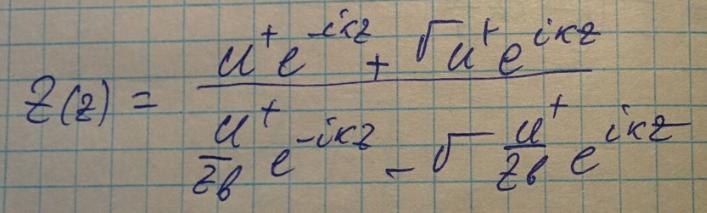 Z(z) = \frac{u^+ e^{-ikz} + Γ u^+ e^{ikz}}{\frac{u^+}{z_в} e^{-ikz} - Γ \frac{u^+}{z_в} e^{ikz}}